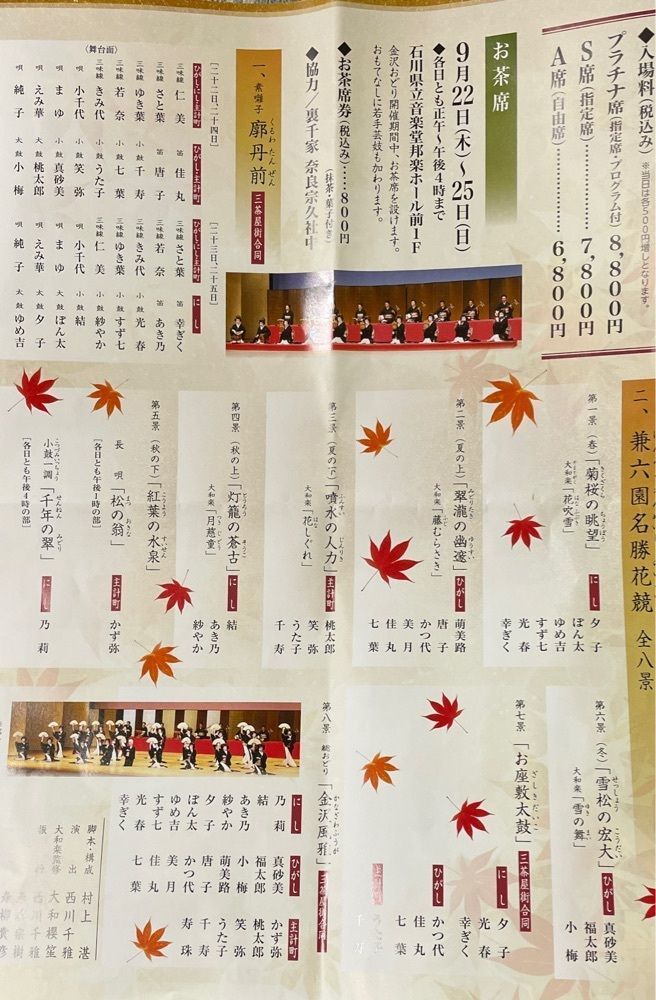 ◆入場料(税込み) ※当日は各500円増しとなります。
プラチナ席(指定席・プログラム付) 8,800円
S席(指定席)…………… 7,800円
A席(自由席)…………… 6,800円
お茶席
9月22日(木)〜25日(日)
◆各日とも正午〜午後4時まで
石川県立音楽堂邦楽ホール前1F
金沢おどり開催期間中、お茶席を設けます。
おもてなしに若手芸妓も加わります。
◆お茶席券(税込み)……800円
(抹茶・菓子付き)
◆協力/裏千家 奈良宗久社中
一、素囃子 廓丹前 三茶屋街合同
くるわ たん ぜん
[二十二日、二十四日]
ひがし・にし・主計町
三味線 仁美
三味線 さと葉
三味線 ゆき葉
三味線 若奈
三味線 きみ代
唄 小千代
唄 まゆ
唄 えみ華
唄 純子
ひがし・主計町
笛 佳丸
笛 唐子
小鼓 千寿
小鼓 七葉
小鼓 うた子
小鼓 笑弥
大鼓 真砂美
太鼓 桃太郎
太鼓 小梅
(舞台面)
[二十三日、二十五日]
ひがし・にし・主計町
三味線 さと葉
三味線 若奈
三味線 きみ代
三味線 ゆき葉
三味線 仁美
唄 小千代
唄 まゆ
唄 えみ華
唄 純子
にし
笛 幸ぎく
笛 あき乃
小鼓 光春
小鼓 すず七
小鼓 紗やか
小鼓 結
大鼓 ぽん太
太鼓 夕子
太鼓 ゆめ吉
二、兼六園名勝花競 全八景
第一景(春)「菊桜の眺望」
きくざくら ちょうぼう
大和楽「花吹雪」
はなふぶき
にし
夕子
ぽん太
ゆめ吉
すず七
光春
幸ぎく
第二景(夏の上)「翠瀧の幽邃」
みどりたき ゆうすい
大和楽「藤むらさき」
ふじ
ひがし
萌美路
唐子
かつ代
美月
佳丸
七葉
第三景(夏の下)「噴水の人力」
ふんすい じんりき
大和楽「花しぐれ」
はな
主計町
桃太郎
笑弥
うた子
千寿
第四景(秋の上)「灯籠の蒼古」
とうろう そうこ
大和楽「月慈童」
つきじどう
にし
結
あき乃
紗やか
第五景(秋の下)「紅葉の水泉」
こうよう すいせん
長唄「松の翁」
まつ おきな
[各日とも午後1時の部]
主計町
かず弥
小鼓一調「千年の翠」
こつづみいっちょう せんねん みどり
[各日とも午後4時の部]
にし
乃莉
第六景(冬)「雪松の宏大」
せっしょう こうだい
大和楽「雪の舞」
ゆき まい
ひがし
真砂美
福太郎
小梅
第七景「お座敷太鼓」
ざしきだいこ
三茶屋街合同
にし
夕子
光春
幸ぎく
ひがし
かつ代
佳丸
七葉
主計町
うた子
千寿
第八景 総おどり「金沢風雅」
かなざわふうが
三茶屋街合同
にし
乃莉
結
あき乃
紗やか
夕子
ぽん太
ゆめ吉
すず七
光春
幸ぎく
ひがし
真砂美
福太郎
小梅
萌美路
唐子
かつ代
美月
佳丸
七葉
主計町
かず弥
桃太郎
笑弥
うた子
千寿
寿珠
脚本・構成 村上湛
演出 西川千雅
大和楽監修 大和櫻笙
振付 西川千雅